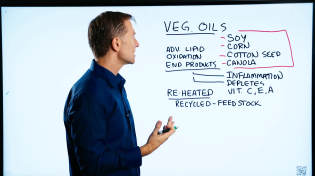 VEG. OILS
- SOY
- CORN
- COTTON SEED
- CANOLA
ADV. LIPID
OXIDATION
END PRODUCTS
INFLAMMATION
DEPLETES
VIT. C, E, A
RE-HEATED
RECYCLED - FEED STOCK